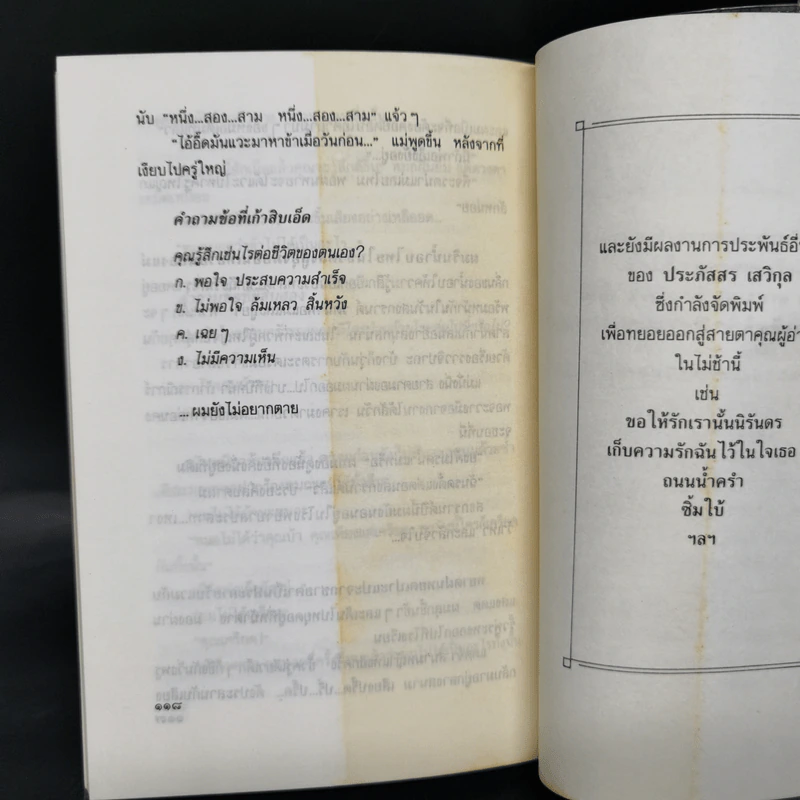 นับ "หนึ่ง...สอง...สาม หนึ่ง...สอง...สาม" แจ้วๆ
"ไอ้อี๊ดมันแวะมาหาข้าเมื่อวันก่อน..." แม่พูดขึ้น หลังจากที่
เงียบไปครู่ใหญ่
คำถามข้อที่เก้าสิบเอ็ด
คุณรู้สึกเช่นไรต่อชีวิตของตนเอง?
ก. พอใจ ประสบความสำเร็จ
ข. ไม่พอใจ ล้มเหลว สิ้นหวัง
ค. เฉยๆ
ง. ไม่มีความเห็น
...ผมยังไม่อยากตาย
๑๑๘
และยังมีผลงานการประพันธ์อื่น
ของ ประภัสสร เสวิกุล
ซึ่งกำลังจัดพิมพ์
เพื่อทยอยออกสู่สายตาคุณผู้อ่า
ในไม่ช้านี้
เช่น
ขอให้รักเรานั้นนิรันดร
เก็บความรักฉันไว้ในใจเธอ
ถนนน้ำครำ
ซิ้มใบ้
ฯลฯ